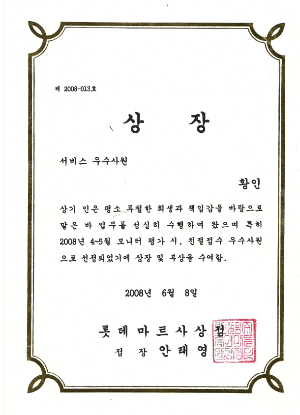 제 2008-013호
상 장
서비스 우수사원
황인
상기 인은 평소 투철한 희생과 책임감을 바탕으로
맡은 바 업무를 성실히 수행하여 왔으며 특히
2008년 4~5월 모니터 평가 시, 친절점수 우수사원
으로 선정되었기에 상장 및 부상을 수여함.
2008년 6월 8일
롯데마트사상점
점 장 안태영